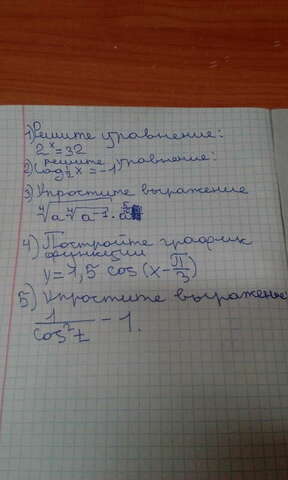 1) Решите уравнение:
2^x = 32
2) решите уравнение:
log_{1/2} x = -1
3) Упростите выражение
∜a ∜a^{-1} ·
4) Постройте график
функции
y = 1,5 cos (x - π/3)
5) Упростите выражение
1/cos²t - 1.